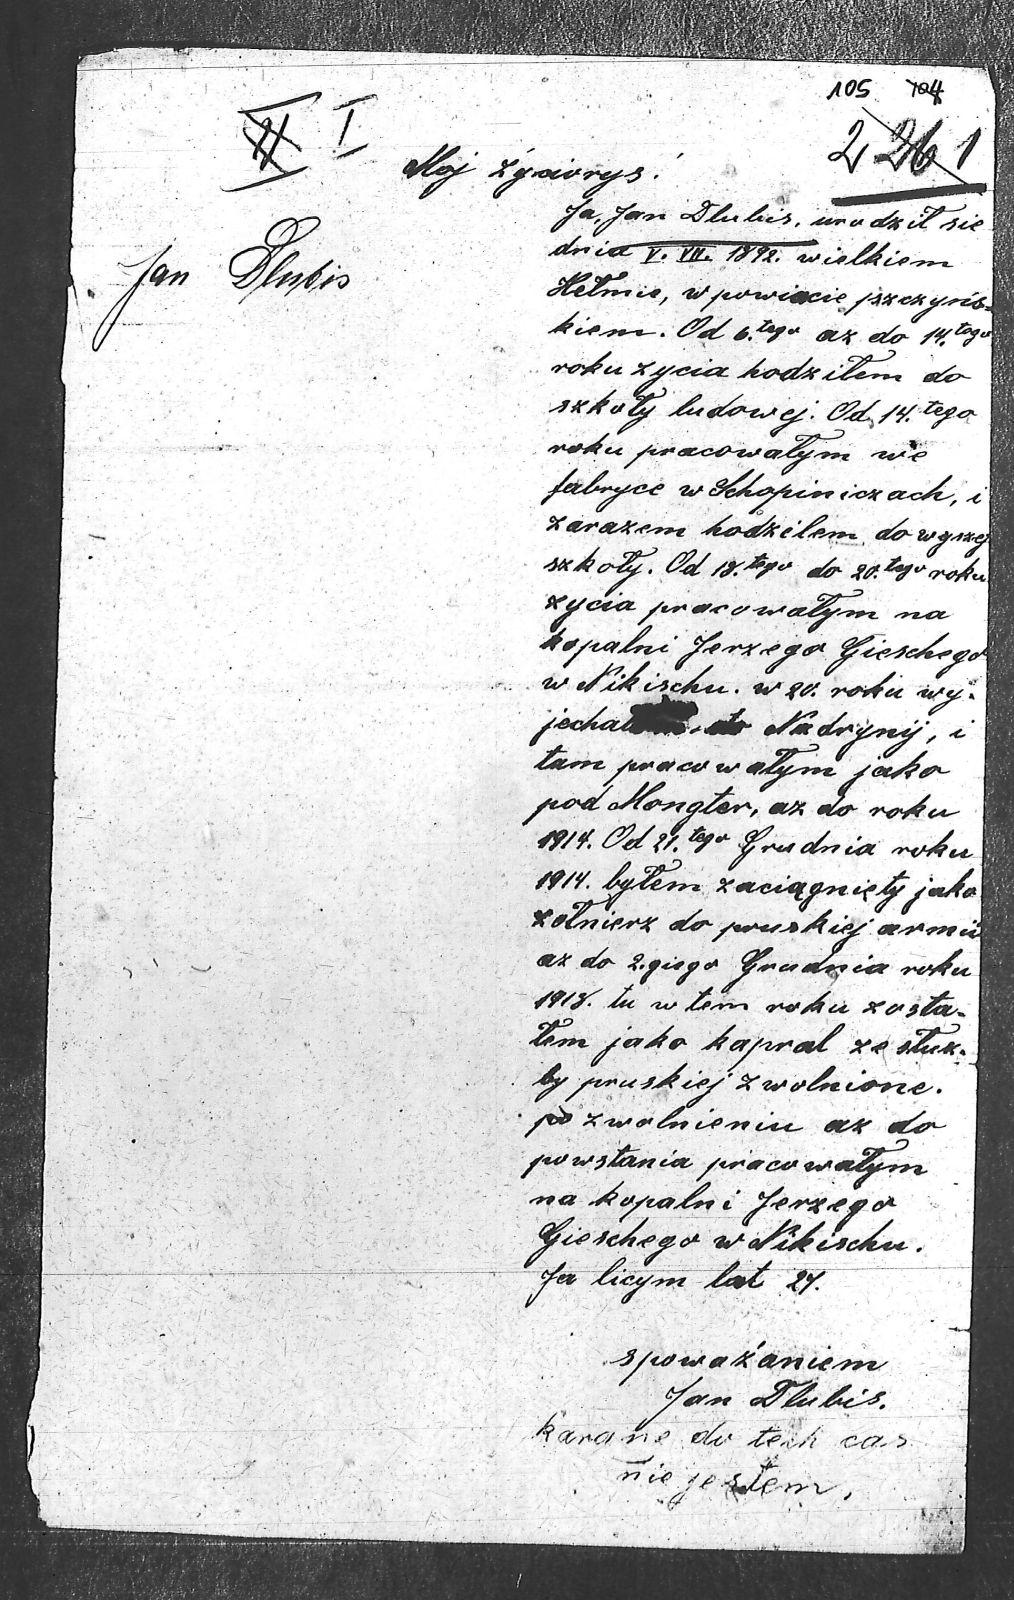 105 104
II I
2 261
Moj życiorys!
Ja, Jan Dlubis, urodził sie
dnia V. VII. 1892. wielkiem
Jan Dlubis
Hełmie, w powiecie pszczyńs-
kiem. Od 6.tego az do 14.tego
roku zycia hodziłem do
szkoły ludowej. Od 14.tego
roku pracowałym we
fabryce w Schopiniczach, i
zarazem hodziłem do wyszej
szkoły. Od 18.tego do 20.tego roku
zycia pracowałym na
kopalni Jerzego Gieschego
w Nikischu. w 20. roku wy-
jechał do Nadrynij, i
tam pracowałym jako
pod Mongter, az do roku
1914. Od 21.tego Grudnia roku
1914. byłem zaciągnięty jako
zołnierz do pruskiej armii
az do 2.giego Grudnia roku
1918. tu w tem roku zosta-
łem jako kapral ze służ-
by pruskiej zwolnione.
po zwolnieniu az do
powstania pracowałym
na kopalni Jerzego
Gieschego w Nikischu.
Ja licym lat 27.
spoważaniem
Jan Dlubis.
karane do tech cas
nie jestem.